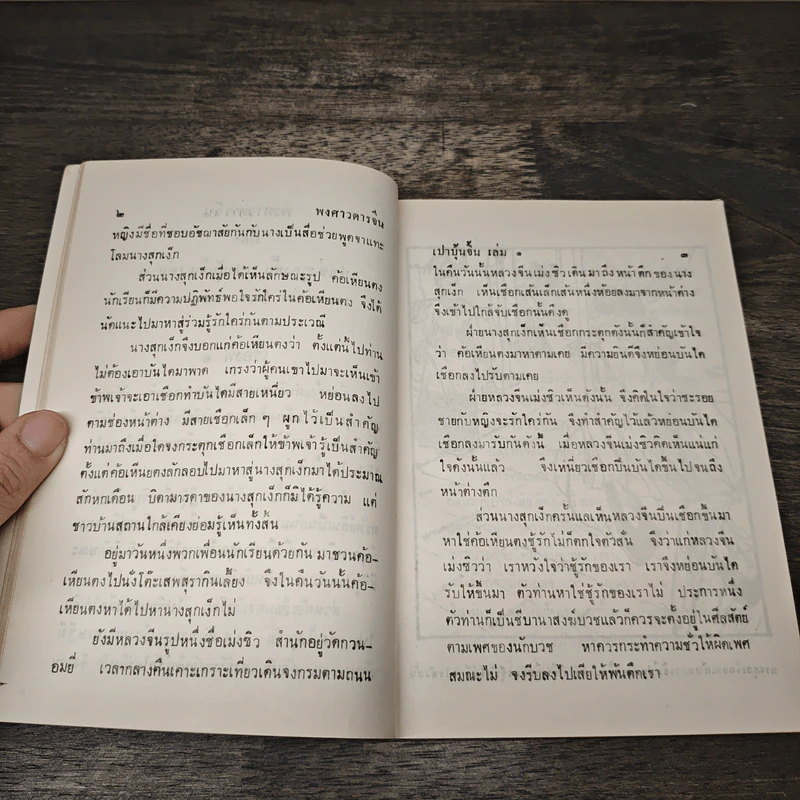 ๒ พงศาวดารจีน
หญิงมีชื่อที่ชอบอัชฌาสัยกันกับนางเป็นสื่อช่วยพูดจาแทะ
โลมนางสุกเง็ก
ส่วนนางสุกเง็กเมื่อได้เห็นลักษณะรูป ค้อเหียนตง
นักเรียนก็มีความปฏิพัทธ์พอใจรักใคร่ในค้อเหียนตง จึงได้
นัดแนะไปมาหาสู่ร่วมรู้รักใคร่กันตามประเวณี
นางสุกเง็กจึงบอกแก่ค้อเหียนตงว่า ตั้งแต่นี้ไปท่าน
ไม่ต้องเอาบันไดมาพาด เกรงว่าผู้คนเขาไปมาจะเห็นเข้า
ข้าพเจ้าจะเอาเชือกทำบันไดมีสายเหนี่ยว หย่อนลงไป
ตามช่องหน้าต่าง มีสายเชือกเล็ก ๆ ผูกไว้เป็นสำคัญ
ท่านมาถึงเมื่อใดจงกระตุกเชือกเล็กให้ข้าพเจ้ารู้เป็นสำคัญ
ตั้งแต่ค้อเหียนตงลักลอบไปมาหาสู่นางสุกเง็กมาได้ประมาณ
สักหกเดือน บิดามารดาของนางสุกเง็กก็มิได้รู้ความ แต่
ชาวบ้านสถานใกล้เคียงย่อมรู้เห็นทั้งสิ้น
อยู่มาวันหนึ่งพวกเพื่อนนักเรียนด้วยกัน มาชวนค้อ-
เหียนตงไปนั่งโต๊ะเสพสุรากินเลี้ยง จึงในคืนวันนั้นค้อ-
เหียนตงหาได้ไปหานางสุกเง็กไม่
ยังมีหลวงจีนรูปหนึ่งชื่อเม่งซิว สำนักอยู่วัดกวน-
อมยี่ เวลากลางคืนเคาะเกราะเที่ยวเดินจงกรมตามถนน
เปาบุ้นจิ้น เล่ม ๑ ๓
ในคืนวันนั้นหลวงจีนเม่งซิวเดินมาถึงหน้าตึกของนาง
สุกเง็ก เห็นเชือกเส้นเล็กเส้นหนึ่งห้อยลงมาจากหน้าต่าง
จึงเข้าไปใกล้จับเชือกนั้นดึงดู
ฝ่ายนางสุกเง็กเห็นเชือกกระตุกดังนั้นก็สำคัญเข้าใจ
ว่า ค้อเหียนตงมาหาตามเคย มีความยินดีจึงหย่อนบันได
เชือกลงไปรับตามเคย
ฝ่ายหลวงจีนเม่งซิวเห็นดังนั้น จึงคิดในใจว่าชะรอย
ชายกับหญิงจะรักใคร่กัน จึงทำสำคัญไว้แล้วหย่อนบันได
เชือกลงมารับกันดังนี้ เมื่อหลวงจีนเม่งซิวคิดเห็นแน่แก่
ใจดังนั้นแล้ว จึงเหนี่ยวเชือกปีนบันไดขึ้นไปจนถึง
หน้าต่างตึก
ส่วนนางสุกเง็กครั้นแลเห็นหลวงจีนปีนเชือกขึ้นมา
หาใช่ค้อเหียนตงชู้รักไม่ก็ตกใจตัวสั่น จึงว่าแก่หลวงจีน
เม่งซิวว่า เราหวังใจว่าชู้รักของเรา เราจึงหย่อนบันได
รับให้ขึ้นมา ตัวท่านหาใช่ชู้รักของเราไม่ ประการหนึ่ง
ตัวท่านก็เป็นชีบานาสงฆ์บวชแล้วก็ควรจะตั้งอยู่ในศีลสัตย์
ตามเพศของนักบวช หาควรกระทำความชั่วให้ผิดเพศ
สมณะไม่ จงรีบลงไปเสียให้พ้นตึกเรา